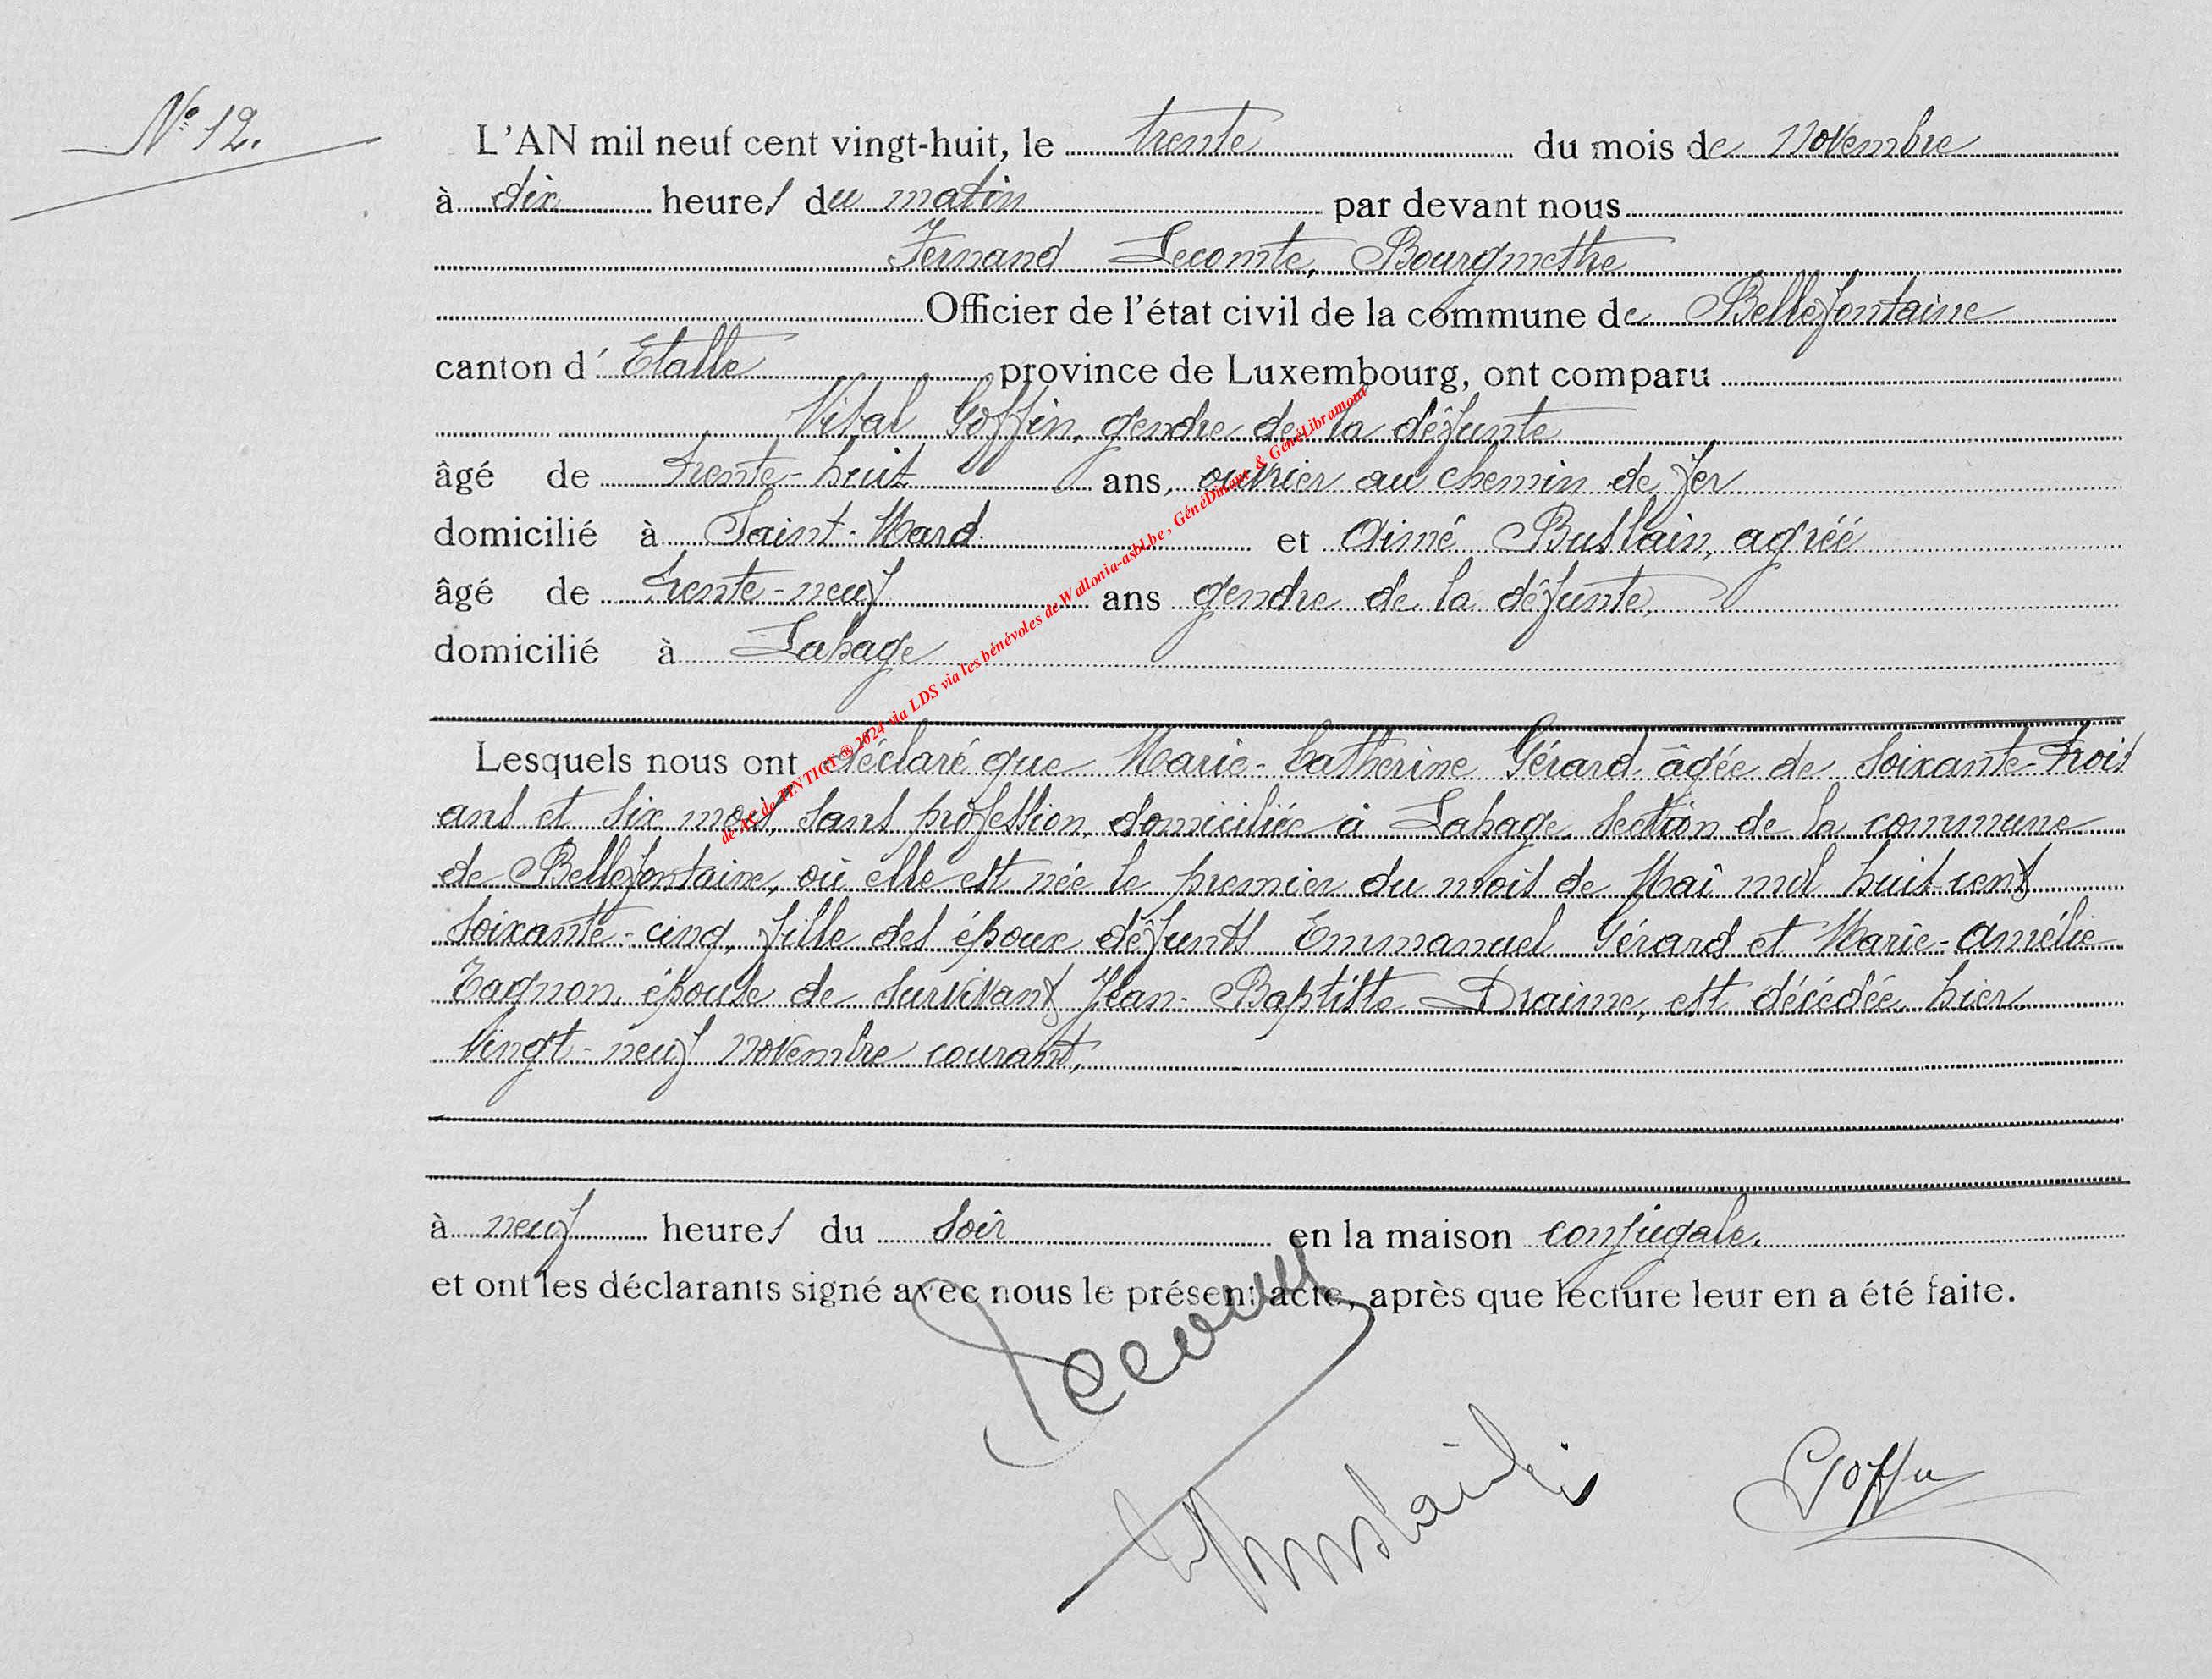 N° 12.
L'AN mil neuf cent vingt-huit, le trente du mois de novembre
à dix heures du matin par devant nous
Fernand Lecomte, Bourgmestre
Officier de l'état civil de la commune de Bellefontaine
canton d'Etalle province de Luxembourg, ont comparu
Vital Goffin, gendre de la défunte
âgé de trente-huit ans, ouvrier au chemin de fer
domicilié à Saint-Mard et Aimé Buslain, agréé
âgé de trente-neuf ans gendre de la défunte,
domicilié à Lahage
Lesquels nous ont déclaré que Marie-Catherine Gérard, âgée de soixante-trois
ans et six mois, sans profession, domiciliée à Lahage, section de la commune
de Bellefontaine, où elle est née le premier du mois de Mai mil huit cent
soixante-cinq, fille des époux défunts Emmanuel Gérard et Marie-Amélie
Tagnon, épouse de survivant Jean-Baptiste Draime, est décédée hier,
vingt-neuf novembre courant,
à neuf heures du soir en la maison conjugale.
et ont les déclarants signé avec nous le présent acte, après que lecture leur en a été faite.
Lecomte
Buslain
Goffin
de AC de TINTIGY® 2024 via LDS via les bénévoles de Wallonia-asbl.be , GénéDinant & GénéLibramont